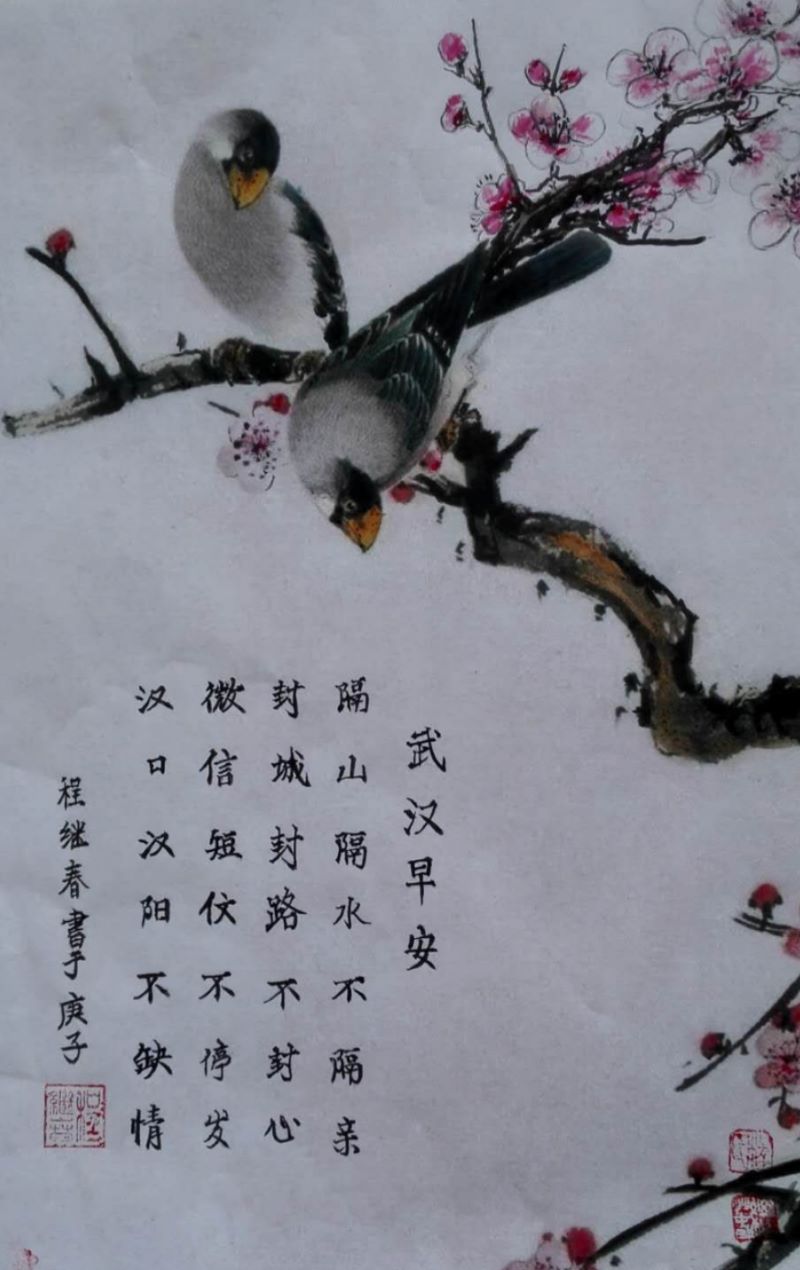 武汉早安
隔山隔水不隔亲
封城封路不封心
微信短仗不停发
汉口汉阳不缺情
程继春書于庚子